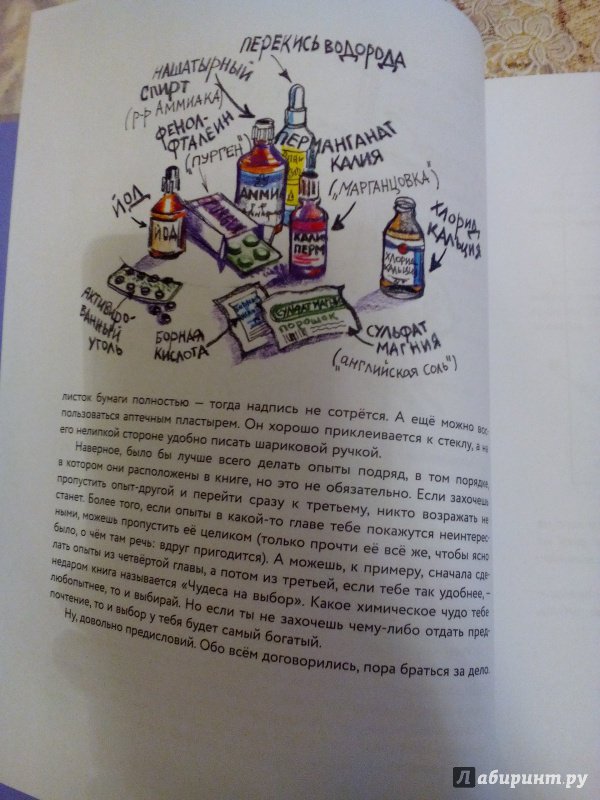 ПЕРЕКИСЬ ВОДОРОДА
НАШАТЫРНЫЙ
СПИРТ
(р-р Аммиака)
ФЕНОЛ-
ФТАЛЕИН
("ПУРГЕН")
ПЕРМАНГАНАТ
КАЛИЯ
("МАРГАНЦОВКА")
ЙОД
ХЛОРИД
КАЛЬЦИЯ
АММИ
ЙОД
КАЛИ
ПЕРМ
ХЛОРИД
КАЛЬЦИ
АКТИВИРО-
ВАННЫЙ
УГОЛЬ
БОРНАЯ
КИСЛОТА
СУЛЬФАТ МАГНИ
ПОРОШОК
СУЛЬФАТ
МАГНИЯ
("английская соль")
листок бумаги полностью — тогда надпись не сотрётся. А ещё можно вос-
пользоваться аптечным пластырем. Он хорошо приклеивается к стеклу, а на
его нелипкой стороне удобно писать шариковой ручкой.
Наверное, было бы лучше всего делать опыты подряд, в том порядке,
в котором они расположены в книге, но это не обязательно. Если захочешь
пропустить опыт-другой и перейти сразу к третьему, никто возражать не
станет. Более того, если опыты в какой-то главе тебе покажутся неинтерес-
ными, можешь пропустить её целиком (только прочти её всё же, чтобы ясно
было, о чём там речь: вдруг пригодится). А можешь, к примеру, сначала сде-
лать опыты из четвёртой главы, а потом из третьей, если тебе так удобнее, –
недаром книга называется «Чудеса на выбор». Какое химическое чудо тебе
любопытнее, то и выбирай. Но если ты не захочешь чему-либо отдать пред-
почтение, то и выбор у тебя будет самый богатый.
Ну, довольно предисловий. Обо всём договорились, пора браться за дело.
Лабиринт.ру